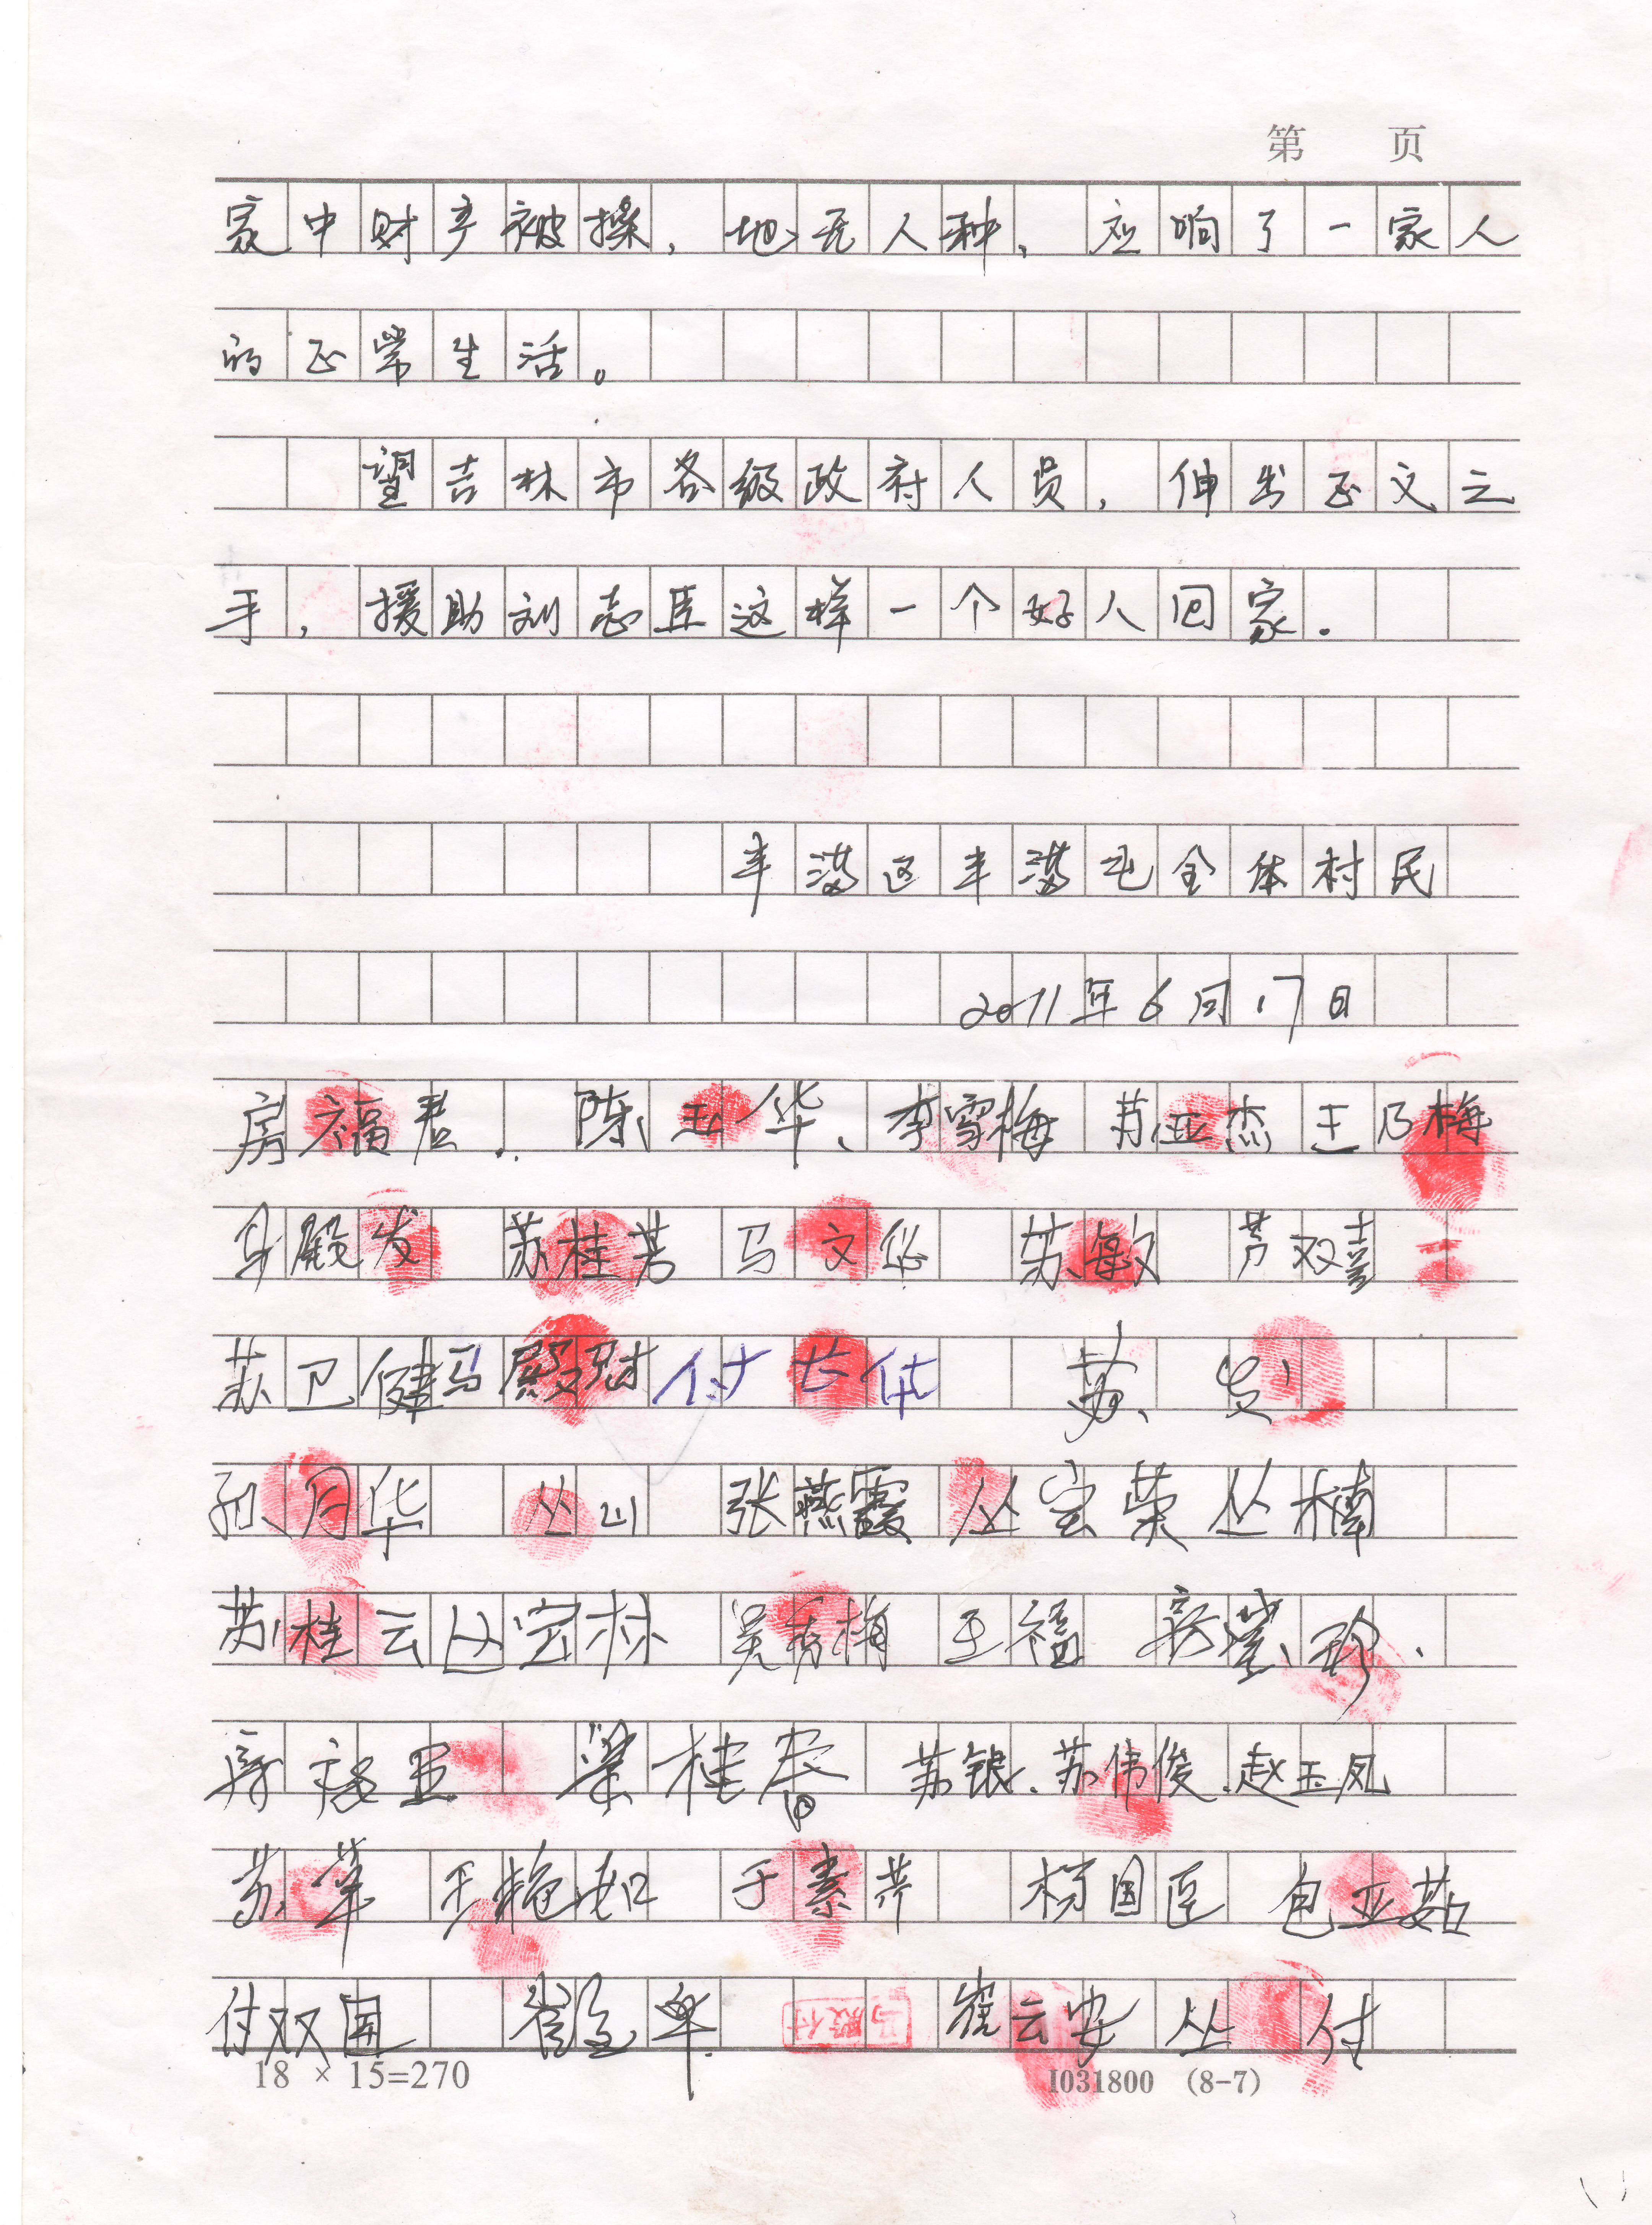 第 页
家中财产被操，地无人种，应响了一家人
的正常生活。
望吉林市各级政府人员，伸出正义之
手，援助刘志臣这样一个好人回家.
丰满区丰满屯全体村民
2011年6月17日
房福君.. 陈玉华、李雪梅 苏亚杰 王乃梅
马殿发 苏桂芳 马文 苏敏 芦双喜
苏卫健 马殿财 付长华 苏
孙月华 丛山 张燕霞 丛宝荣 丛楠
苏桂云 丛宝林 吴秀梅 王福
梁桂春 苏银. 苏伟俊. 赵玉凤
苏苹 王艳如 于素芹 杨国臣 包亚茹
付双国 崔 崔云安 丛 付
18 × 15=270 I031800 (8-7)